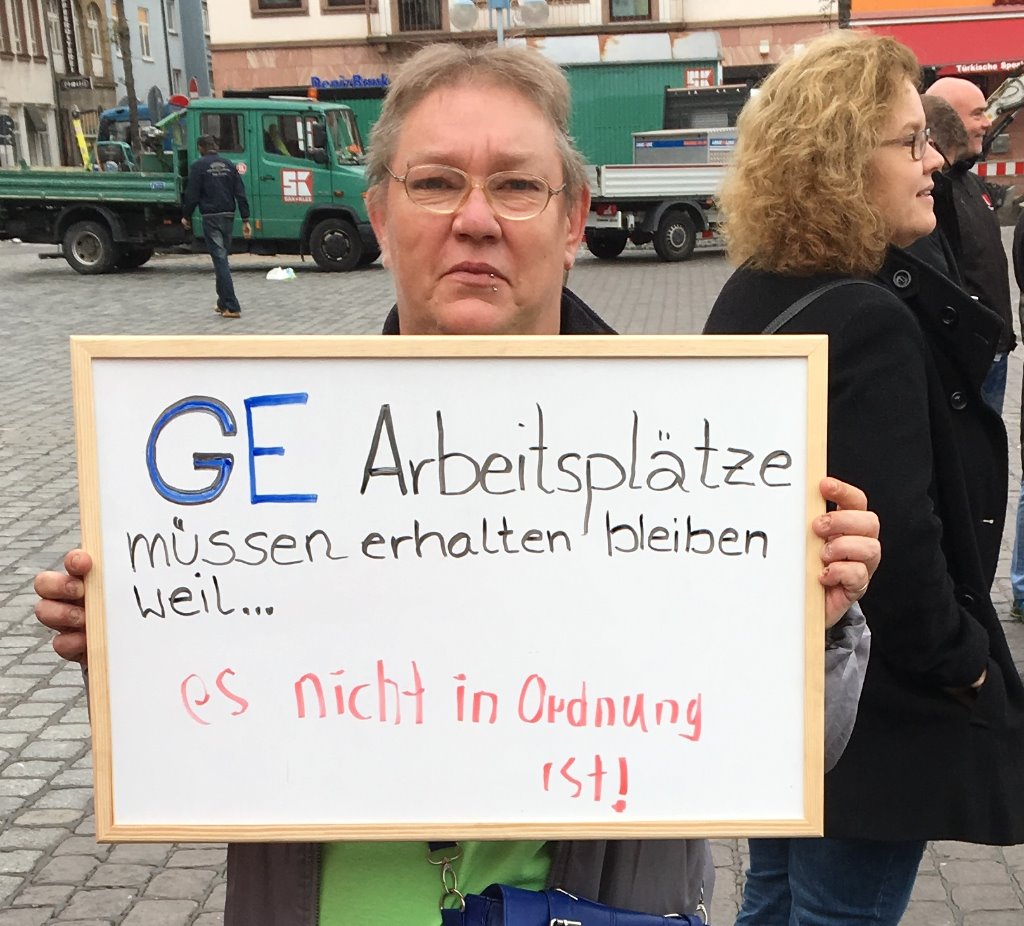 DenizBank
Türkische Spez
SK
SK
GE Arbeitsplätze
müssen erhalten bleiben
weil...
es nicht in Ordnung
ist!